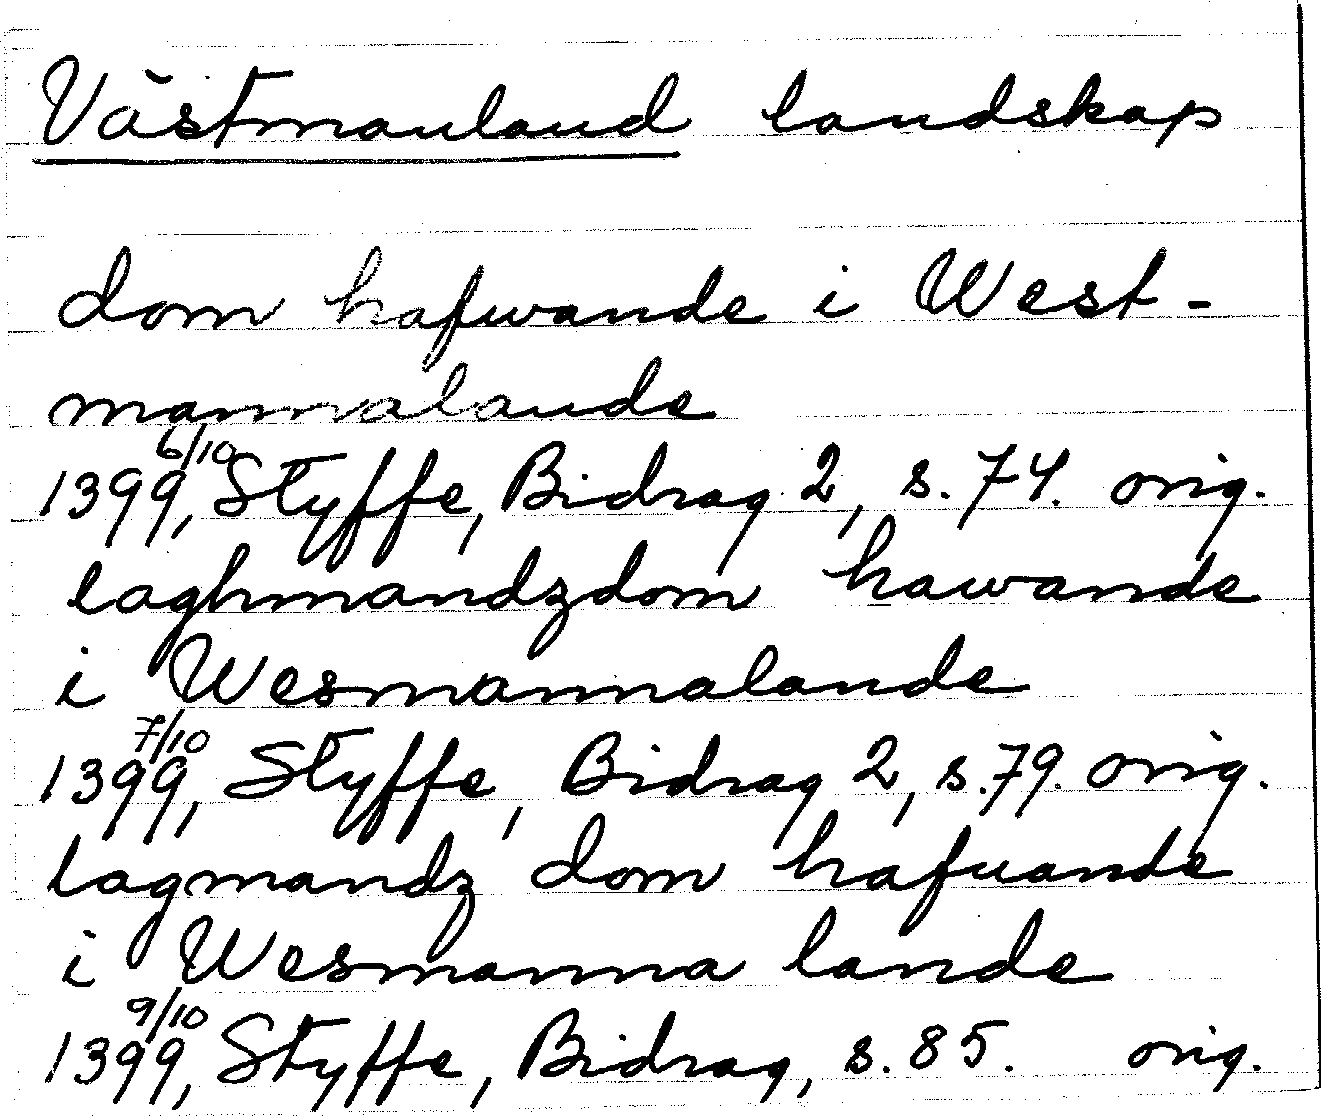 Västmanland landskap
dom hafwande i West-
mannalande
1399 6/10, Styffe, Bidrag 2, s. 74. orig.
laghmandzdom hawande
i Wesmannalande
1399 7/10, Styffe, Bidrag 2, s. 79. orig.
lagmandz dom hafuande
i Wesmanna lande
1399 9/10, Styffe, Bidrag, s. 85. orig.